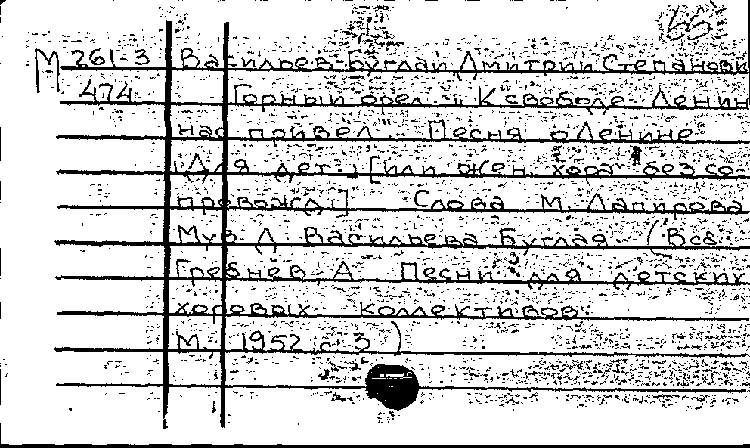 66
М 261-3 Васильев-Буглай Дмитрий Степанови
474 Горный орел. "К свободе Ленин
нас привел". Песня о Ленине
[Для дет.] [или жен. хора без со-
провожд.] Слова М. Лапирова
Муз. Д. Васильева-Буглая. (В сб.
Гребнев, А. Песни для детских
хоровых коллективов.
М., 1952, с. 3)